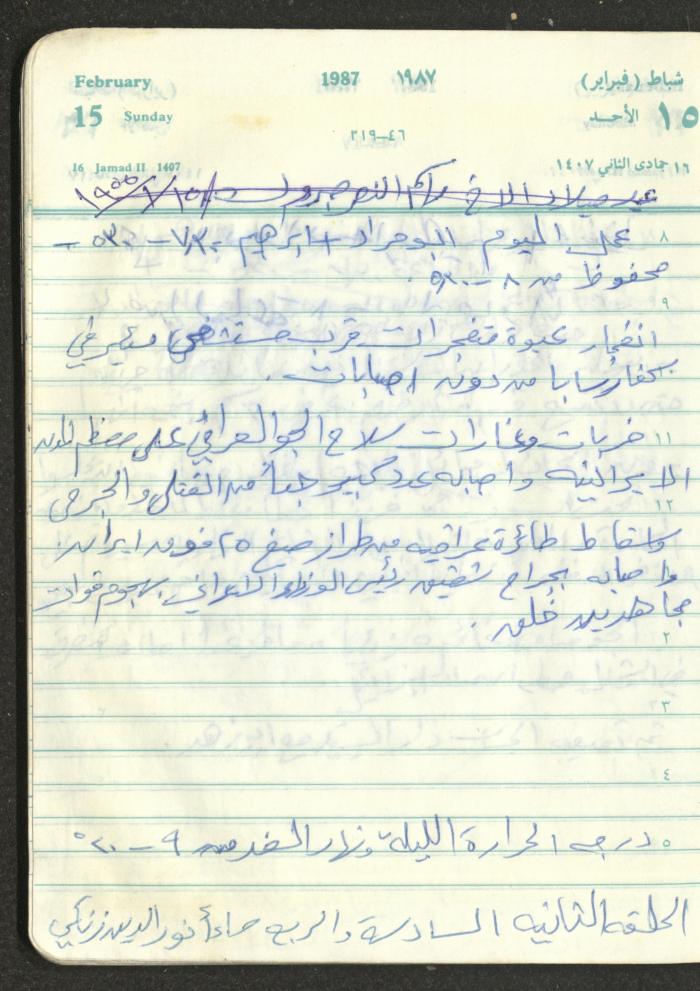 February 1987 ١٩٨٧ شباط (فبراير)
15 Sunday الأحد ١٥
٤٦–٣١٩
16 Jamad II 1407 ١٦ جمادى الثاني ١٤٠٧
عيد ميلاد الاخ
٨ عمل اليوم ابو مراد + ابراهيم ٧,٣٠ – ٥,٣٠ –
محفوظ من ٨ – ٥,٣٠ .
٩
انفجار عبوة متفجرات قرب مستشفى مئير في
بكفار سابا من دون اصابات .
١١ ضربات وغارات سلاح الجو العراقي على معظم المدن
الايرانيه واصابه عدد كبير جداً من القتلى والجرحى
١٢
واسقاط طائرة عراقيه من طراز ميغ ٢٥ فوق ايران
واصابه بجراح شقيق رئيس الوزراء الايراني بهجوم قوات
مجاهدين خلق .
٢
٣
٤
٥ درجه الحرارة الليلة ونهار الغد من ٩ – ٢٠°
الحلقه الثانيه السادسة والربع مساءً نور الدين زنكي